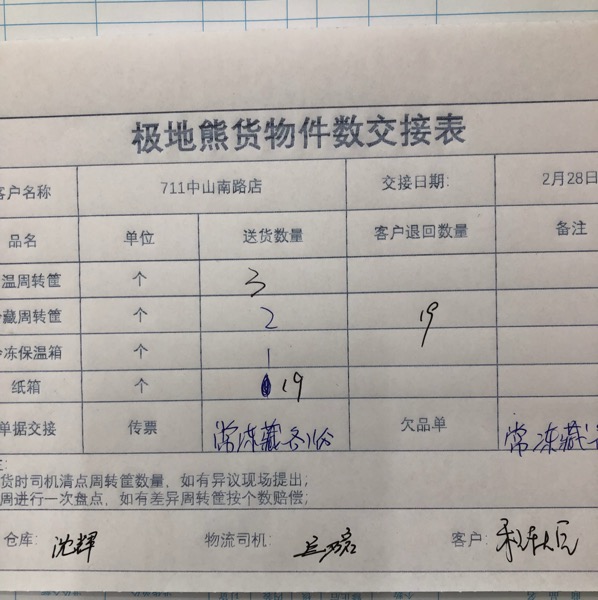 极地熊货物件数交接表
客户名称 711中山南路店 交接日期: 2月28日
品名 单位 送货数量 客户退回数量 备注
温周转筐 个 3
藏周转筐 个 2 19
冻保温箱 个 1
纸箱 个 19
单据交接 传票 常冻藏各1份 欠品单 常冻藏
货时司机清点周转筐数量，如有异议现场提出；
周进行一次盘点，如有差异周转筐按个数赔偿；
仓库: 沈辉 物流司机: 客户: